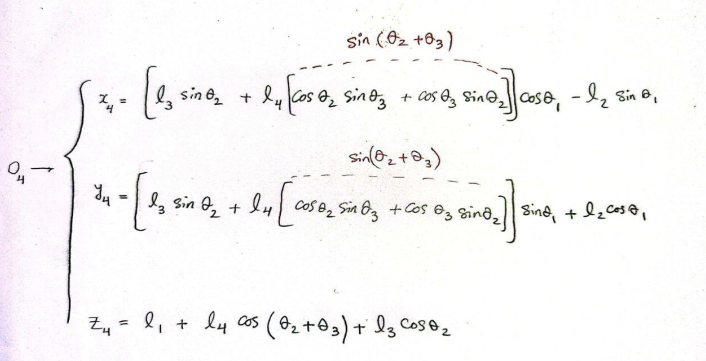 sin (θ₂ + θ₃)
x₄ = [l₃ sin θ₂ + l₄ [cos θ₂ sin θ₃ + cos θ₃ sin θ₂]] cos θ₁ - l₂ sin θ₁
sin(θ₂ + θ₃)
O₄ →
y₄ = [l₃ sin θ₂ + l₄ [cos θ₂ sin θ₃ + cos θ₃ sin θ₂]] sin θ₁ + l₂ cos θ₁
z₄ = l₁ + l₄ cos (θ₂ + θ₃) + l₃ cos θ₂